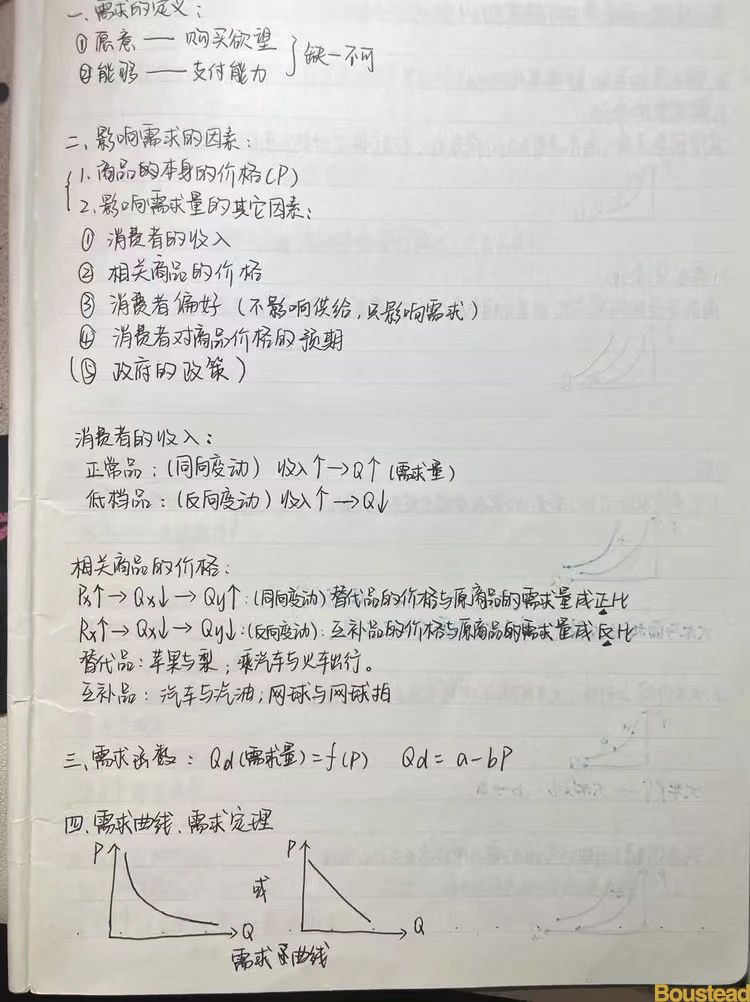 一、需求的定义：
①愿意 —— 购买欲望
②能够 —— 支付能力 } 缺一不可
二、影响需求的因素：
1.商品的本身的价格(P)
2.影响需求量的其它因素：
① 消费者的收入
② 相关商品的价格
③ 消费者偏好（不影响供给，只影响需求）
④ 消费者对商品价格的预期
(⑤ 政府的政策)
消费者的收入：
正常品：（同向变动）收入↑→Q↑（需求量）
低档品：（反向变动）收入↑→Q↓
相关商品的价格：
Px↑→Qx↓→Qy↑：（同向变动）替代品的价格与原商品的需求量成正比
Px↑→Qx↓→Qy↓：（反向变动）：互补品的价格与原商品的需求量成反比
替代品：苹果与梨；乘汽车与火车出行。
互补品：汽车与汽油；网球与网球拍
三、需求函数：Qd(需求量)=f(P) Qd=a-bP
四、需求曲线、需求定理
P 或 P
Q Q
需求曲线
Boustead